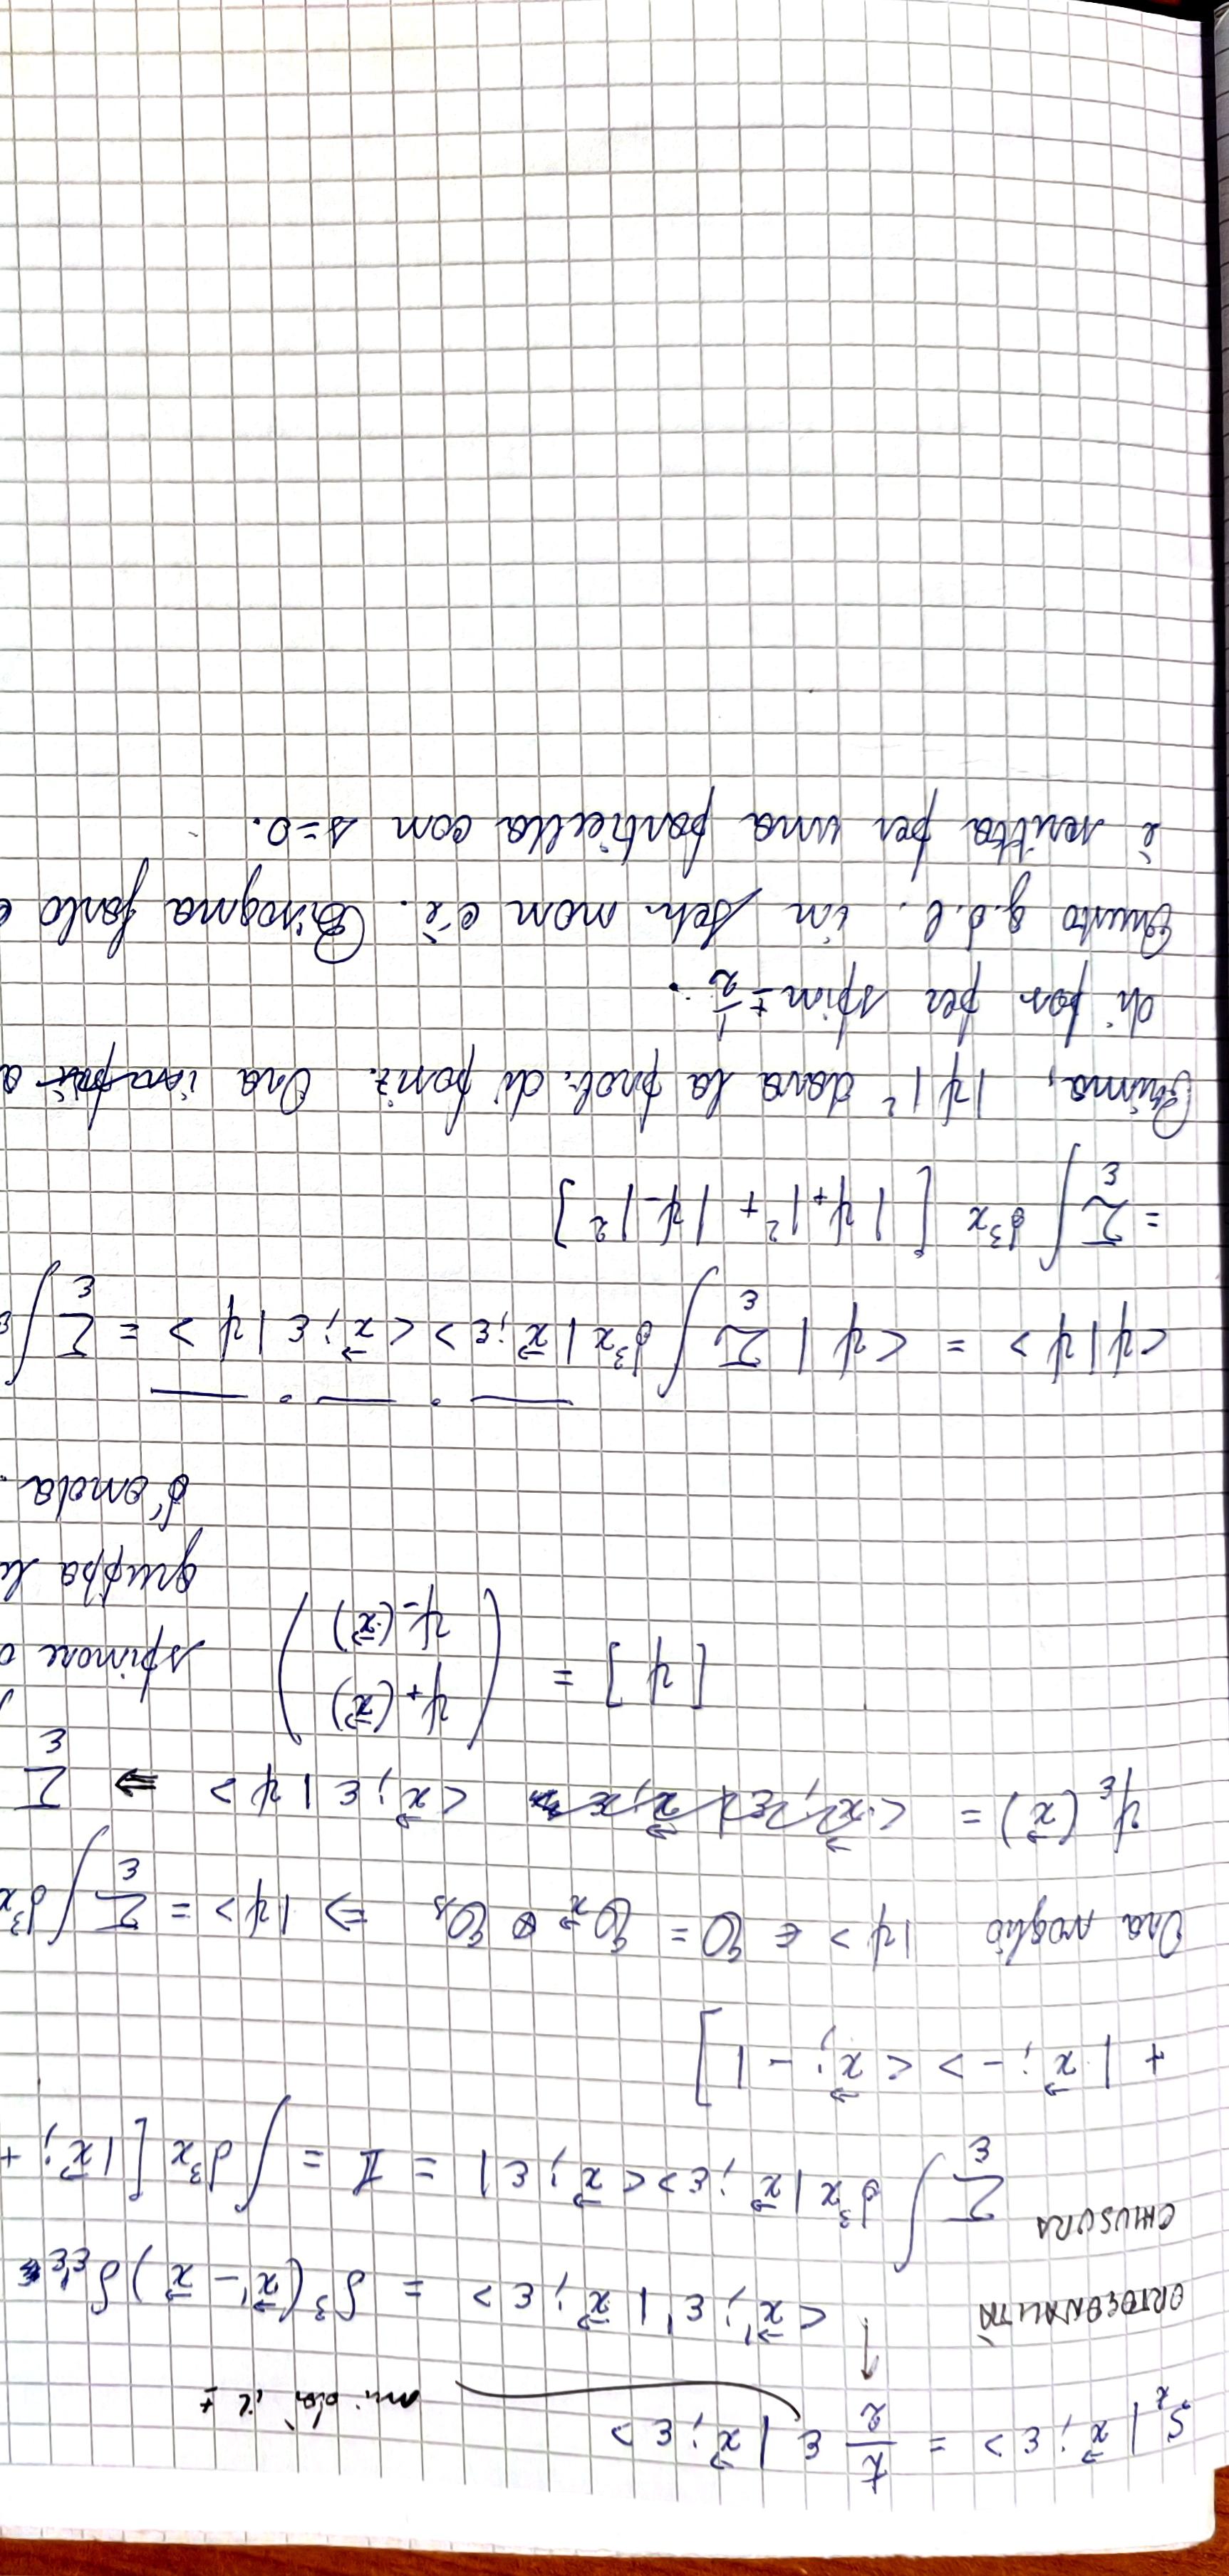 S_z | x⃗ ; ε > = ħ/2 ε | x⃗ ; ε > mi dà il ±
ORTOGONALITÀ ↑ < x⃗' ; ε' | x⃗ ; ε > = δ³(x⃗' - x⃗) δ_ε'ε
CHIUSURA Σ_ε ∫ d³x | x⃗ ; ε > < x⃗ ; ε | = 1 = ∫ d³x [ | x⃗ ; +
+ | x⃗ ; - > < x⃗ ; - | ]
Ora voglio |ψ> ∈ 𝓔 = 𝓔_x⃗ ⊗ 𝓔_s ⇒ |ψ> = Σ_ε ∫ d³x
ψ_ε (x⃗) = < x⃗ ; ε | ψ > ⇒ Σ_ε
[ψ] = ( ψ₊(x⃗) ψ₋(x⃗) ) spinore
gruppa le
d'onda.
<ψ|ψ> = <ψ| Σ_ε ∫ d³x | x⃗ ; ε > < x⃗ ; ε | ψ > = Σ_ε ∫
= Σ_ε ∫ d³x [ |ψ₊|² + |ψ₋|² ]
Prima, |ψ|² dava la prob. di posiz. Ora
di pos per spin ± 1/2.
Questo g.d.l. in Sch. non c'è. Bisogna farlo
è scritta per una particella con s=0.